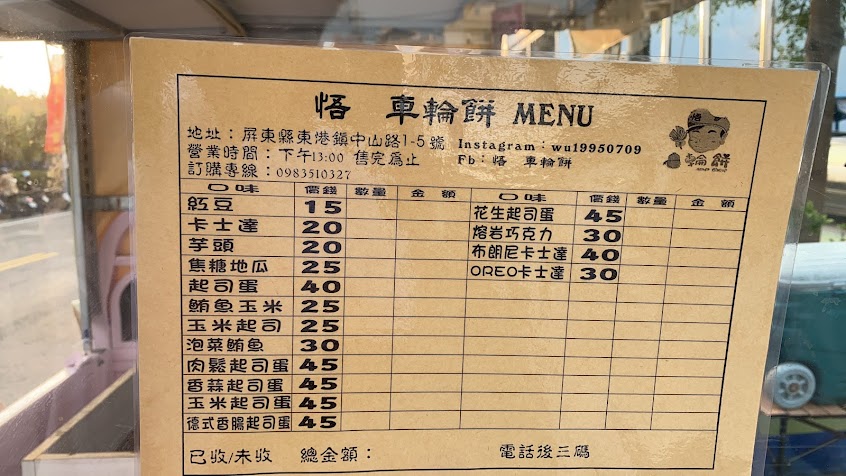 悟 車輪餅 MENU
地址：屏東縣東港鎮中山路1-5號 Instagram：wu19950709
營業時間：下午13:00 售完為止 Fb：悟 車輪餅
訂購專線：0983510327
悟
輪餅
口味 價錢 數量 金額 口味 價錢 數量 金額
紅豆 15 花生起司蛋 45
卡士達 20 熔岩巧克力 30
芋頭 20 布朗尼卡士達 40
焦糖地瓜 25 OREO卡士達 30
起司蛋 40
鮪魚玉米 25
玉米起司 25
泡菜鮪魚 30
肉鬆起司蛋 45
香蒜起司蛋 45
玉米起司蛋 45
德式香腸起司蛋 45
已收/未收 總金額： 電話後三碼